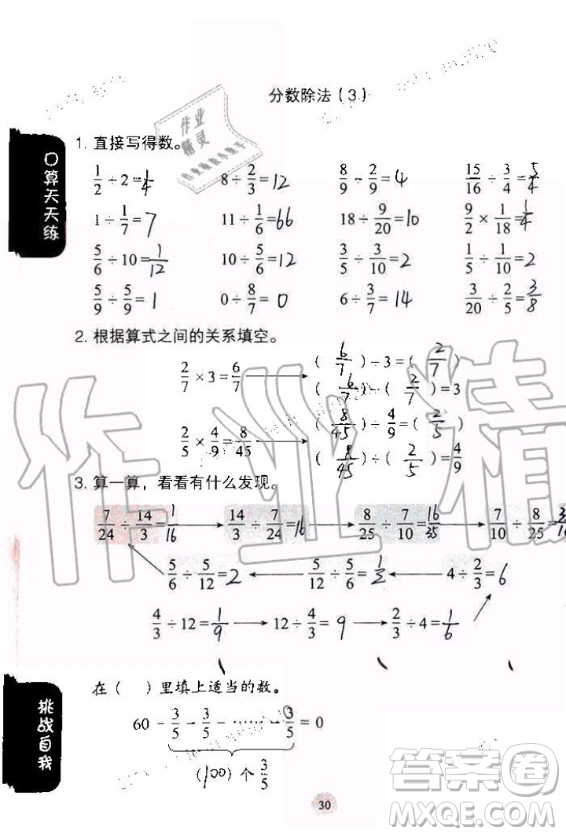 分数除法(3)
口算天天练
1. 直接写得数。
1/2 ÷ 2 = 1/4  8 ÷ 2/3 = 12  8/9 ÷ 2/9 = 4  15/16 ÷ 3/4 = 5/4
1 ÷ 1/7 = 7  11 ÷ 1/6 = 66  18 ÷ 9/20 = 10  9/2 × 1/18 = 1/4
5/6 ÷ 10 = 1/12  10 ÷ 5/6 = 12  3/5 ÷ 3/10 = 2  1/5 ÷ 1/10 = 2
5/9 ÷ 5/9 = 1  0 ÷ 8/7 = 0  6 ÷ 3/7 = 14  3/20 ÷ 2/5 = 3/8
2. 根据算式之间的关系填空。
2/7 × 3 = 6/7 → (6/7) ÷ 3 = (2/7)
(6/7) ÷ (2/7) = 3
2/5 × 4/9 = 8/45 → (8/45) ÷ 4/9 = (2/5)
(8/45) ÷ (2/5) = 4/9
3. 算一算，看看有什么发现。
7/24 ÷ 14/3 = 1/16 → 14/3 ÷ 7/24 = 16  8/25 ÷ 7/10 = 16/35 → 7/10 ÷ 8/25 =
5/6 ÷ 5/12 = 2 ← 5/12 ÷ 5/6 = 1/2 ← 4 ÷ 2/3 = 6
4/3 ÷ 12 = 1/9 → 12 ÷ 4/3 = 9  2/3 ÷ 4 = 1/6
挑战自我
在( )里填上适当的数。
60 - 3/5 - 3/5 - …… - 3/5 = 0
(100)个 3/5
30
作业精灵
作业精
答案圈
MXQE.COM